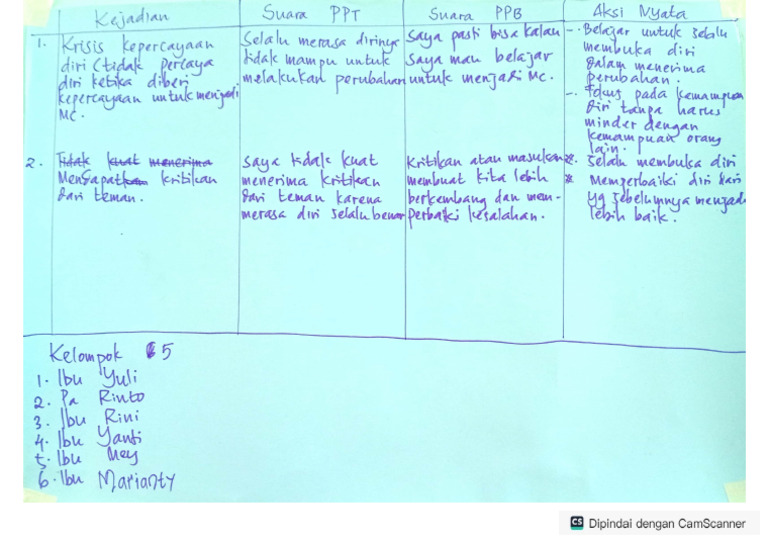 Kejadian
Suara PPT
Suara PPB
Aksi Nyata
1. Krisis kepercayaan
diri (tidak percaya
diri ketika diberi
kepercayaan untuk menjadi
MC.
Selalu merasa dirinya
tidak mampu untuk
melakukan perubahan
Saya pasti bisa kalau
Saya mau belajar
untuk menjadi MC.
- Belajar untuk selalu
membuka diri
dalam menerima
perubahan.
- Fokus pada kemampuan
diri tanpa harus
minder dengan
kemampuan orang
lain.
2. Tidak kuat menerima
Mendapatkan kritikan
dari teman.
Saya tidak kuat
menerima kritikan
dari teman karena
merasa diri selalu benar
Kritikan atau masukan
membuat kita lebih
berkembang dan mem-
perbaiki kesalahan.
* Selalu membuka diri
* Memperbaiki diri dari
yg sebelumnya menjadi
lebih baik.
Kelompok 5
1. Ibu Yuli
2. Pa Rinto
3. Ibu Rini
4. Ibu Yanti
5. Ibu Mey
6. Ibu Marianty
CS Dipindai dengan CamScanner